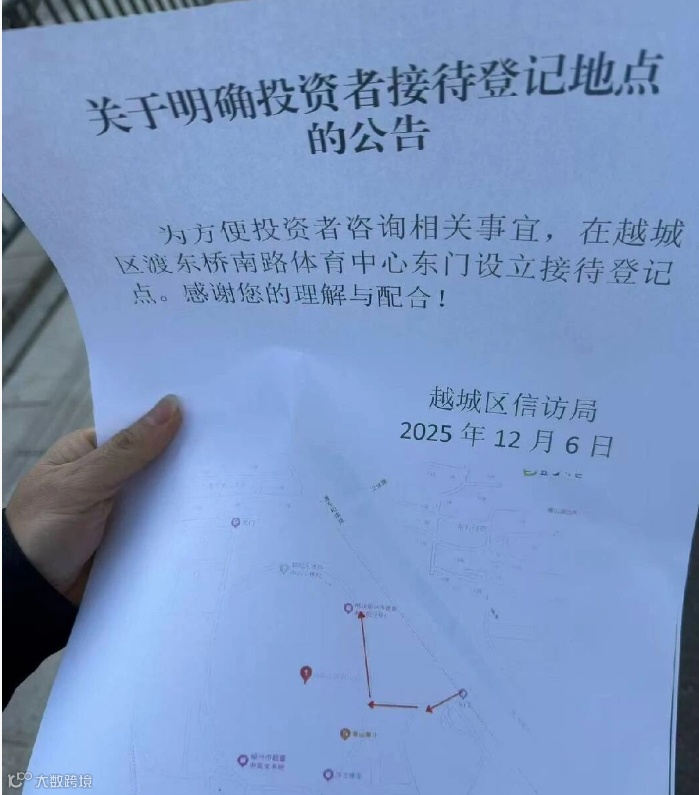 关于明确投资者接待登记地点
的公告
为方便投资者咨询相关事宜，在越城
区渡东桥南路体育中心东门设立接待登记
点。感谢您的理解与配合！
越城区信访局
2025 年 12 月 6 日
北门
大数跨境